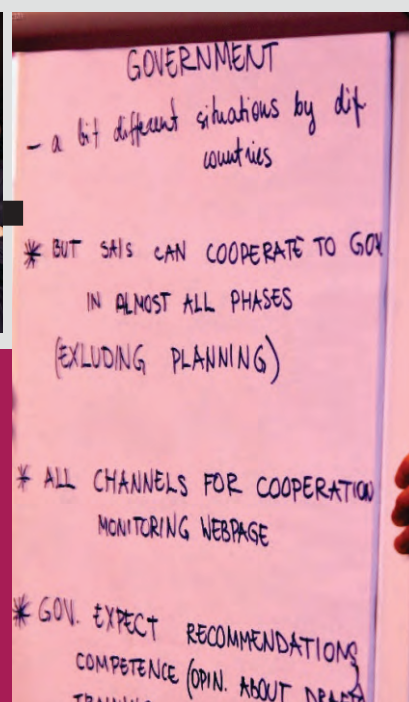 GOVERNMENT
- a bit different situations by dif
countries
* BUT SAIs CAN COOPERATE TO GOV
IN ALMOST ALL PHASES
(EXLUDING PLANNING)
* ALL CHANNELS FOR COOPERATION
MONITORING WEBPAGE
* GOV. EXPECT RECOMMENDATIONS,
COMPETENCE (OPIN. ABOUT DRAFTS